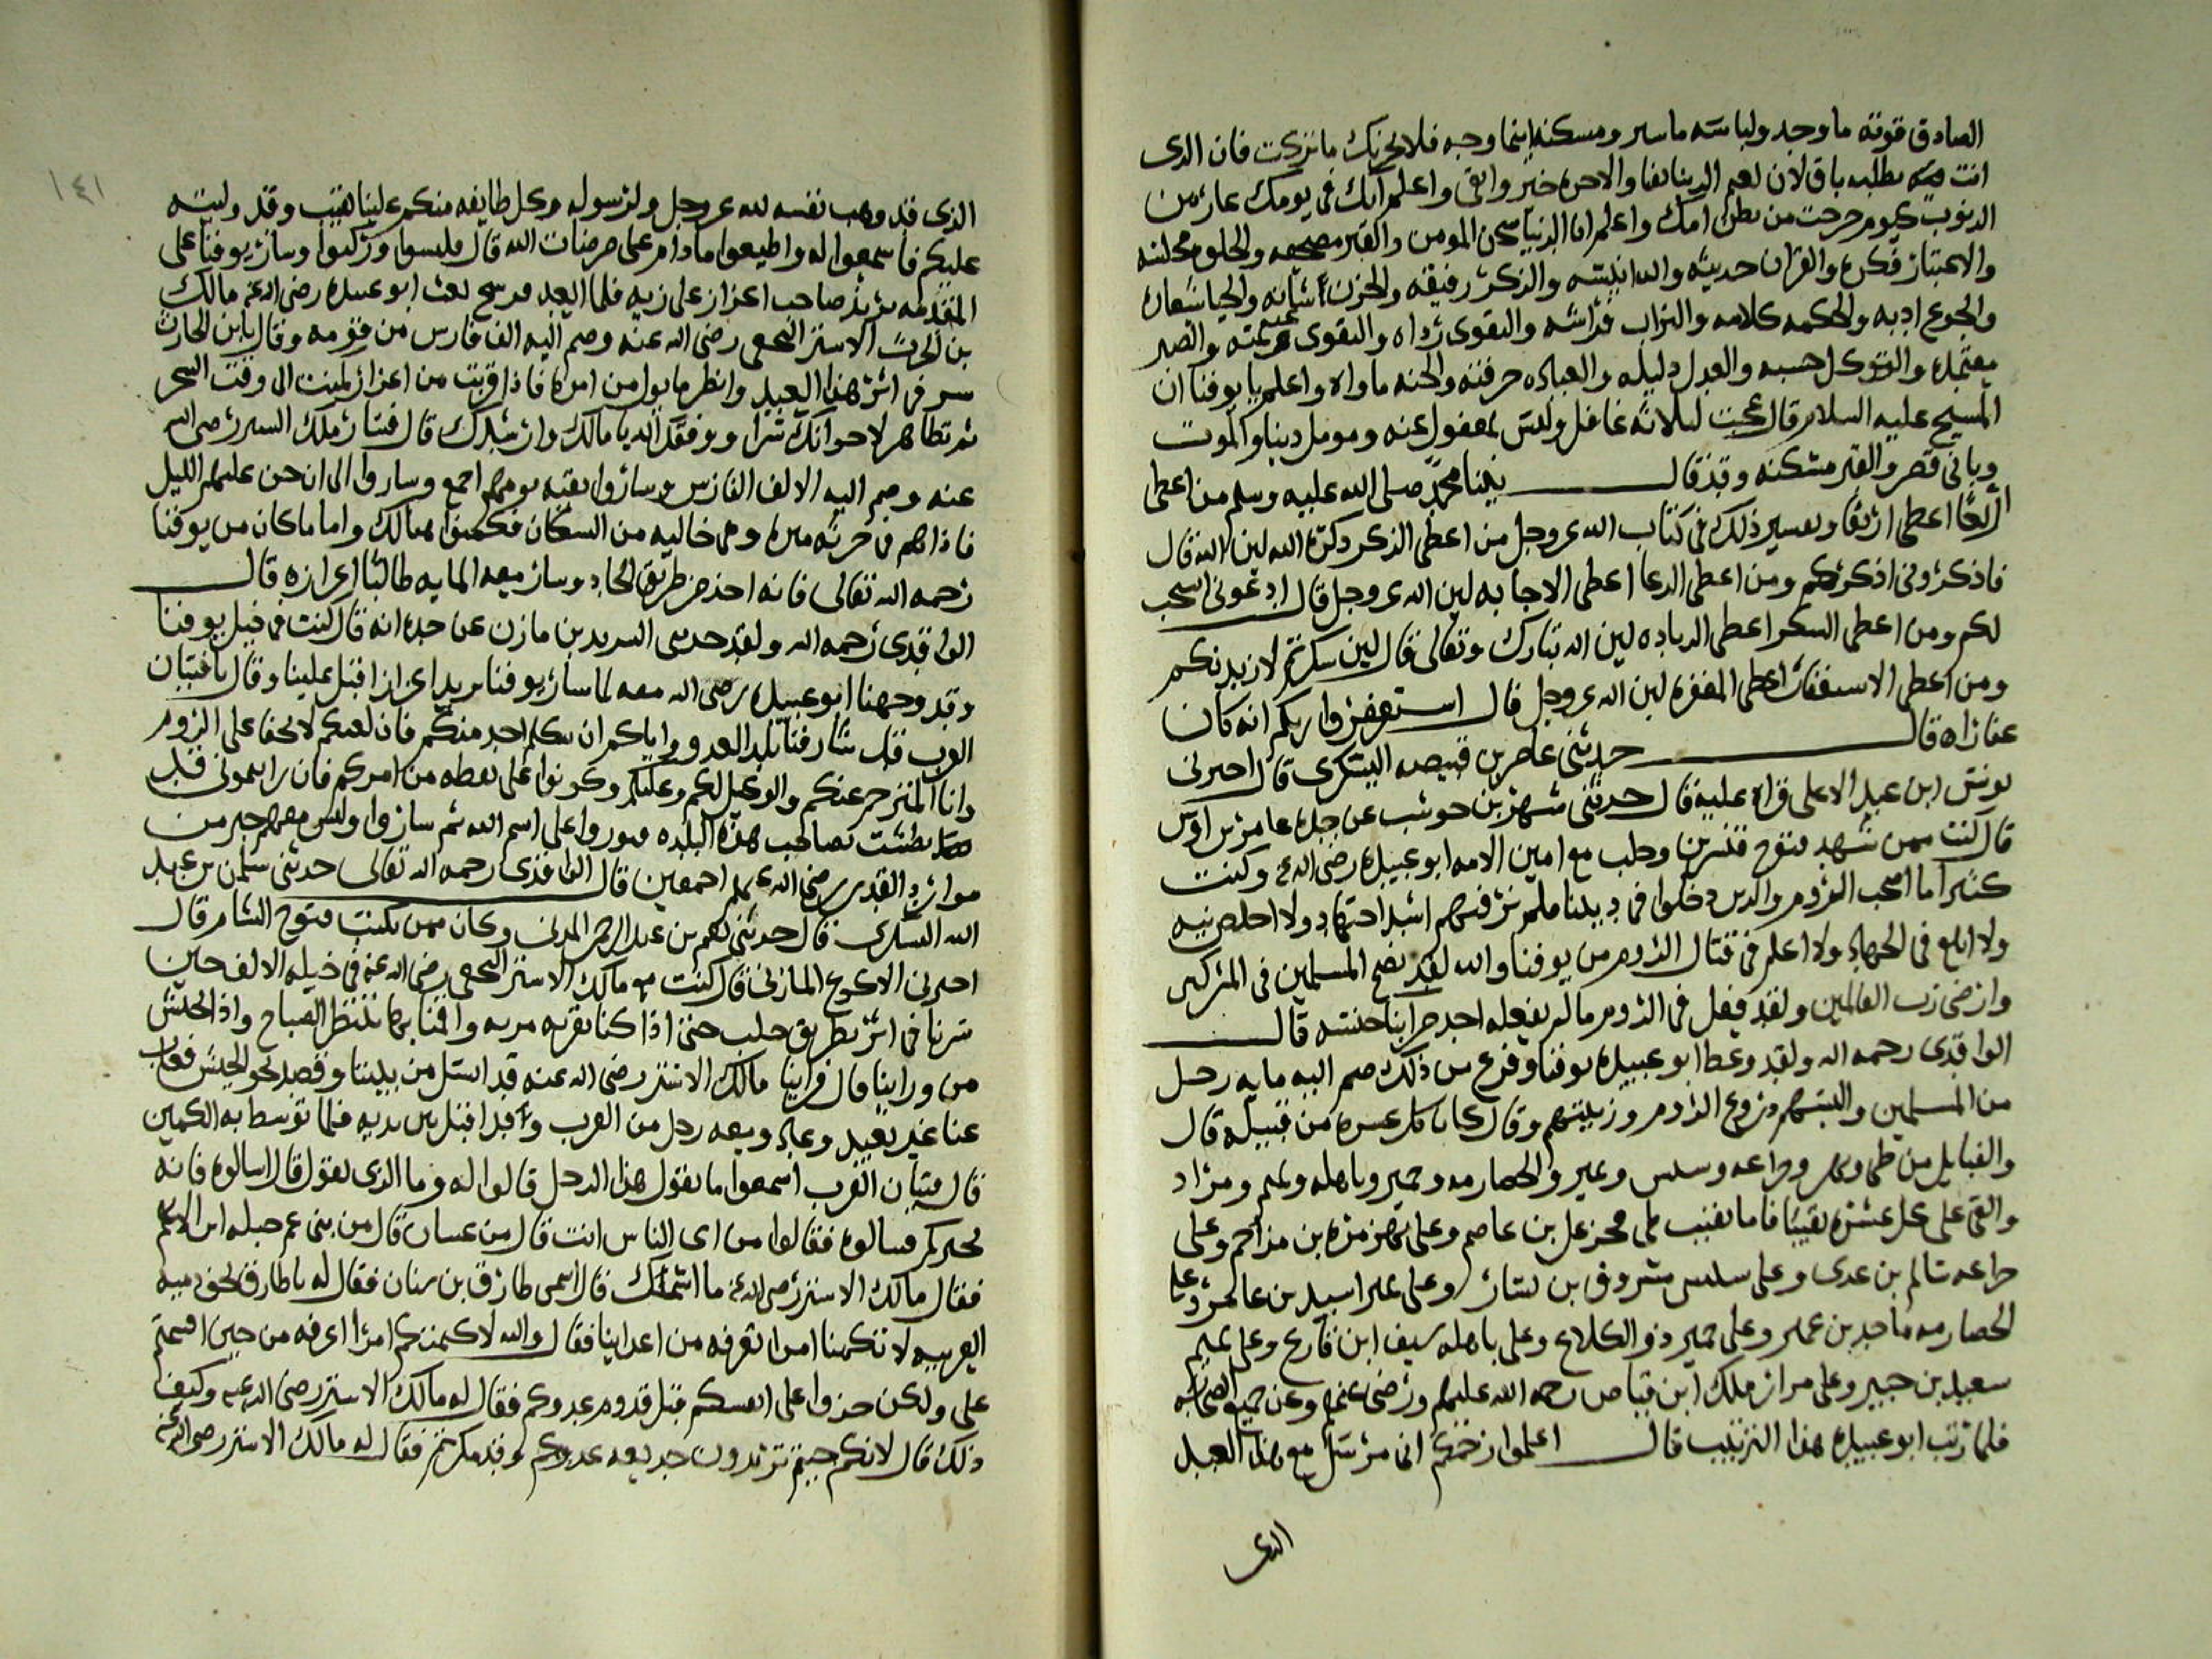 الصادق قوته ما وجد ولباسه ما ستر ومسكنه اينما وجد فلا يحزنك ما تركت فان الذى
انت تطلبه باق لان نعيم الدنيا يفنا والاخره خير وابقى واعلم انك فى يومك عار من
الذنوب كيوم خرجت من بطن امك واعلم ان الدنيا سجن المومن والقبر مضجعه والخلوه مجلسه
والاعتبار فكره والقران حديثه والله انيسه والذكر رفيقه والحزن شانه والحيا شعاره
والجوع ادبه والحكمه كلامه والتراب فراشه والتقوى زاده والصبر
معتمده والتوكل حسبه والعدل دليله والعباده حرفته والجنه ماواه واعلم يا يوقنا ان
المسيح عليه السلام قال عجبت لثلاثه غافل وليس بمغفول عنه ومومل دنيا والموت
وبانى قصر والقبر مسكنه وقد قال نبينا محمد صلى الله عليه وسلم من اعطى
اربعا اعطى اربعا وتفسير ذلك فى كتاب الله عز وجل من اعطى الذكر ذكره الله لين الله قال
فاذكرونى اذكركم ومن اعطى الدعا اعطى الاجابه لين الله عز وجل قال ادعونى استجب
لكم ومن اعطى الشكر اعطى الزياده لين الله تبارك وتعالى قال لين شكرتم لازيدنكم
ومن اعطى الاستغفار اعطى المغفره لين الله عز وجل قال استغفروا ربكم انه كان
غفارا قال حدثنى عامر بن قبيصه اليشكرى قال اخبرنى
يونس ابن عبد الاعلى قراه عليه قال حدثنى شهر بن حوشب عن جده عامر بن اوس
قال كنت ممن شهد فتوح قنسرين وحلب مع امين الامه ابو عبيده رضى الله عنه وكنت
كثيرا ما اصحب الروم والذين دخلوا فى ديننا فلم نر فيهم اشد اجتهاد ولا اخلص نيه
ولا ابلغ فى الجهاد ولا اعلم فى قتال الروم من يوقنا والله لقد نصح المسلمين فى المشركين
وارضى رب العالمين ولقد فعل فى الروم ما لم يفعله احد من ابنا جنسه قال
الواقدى رحمه الله ولقد وعظ ابو عبيده يوقنا وفرغ من ذلك ضم اليه مايه رجل
من المسلمين والبسهم زى الروم وزينتهم وقال كل عشره من قبيله قال
والقبايل من طى وفهر وخزاعه وسنبس ونمير والحضارمه وحمير وباهله وتميم ومراد
والقى على كل عشره نقيبا فاما نقيب طى فخزعل بن عاصم وعلى فهر مره بن مزاحم وعلى
خزاعه سالم بن عدى وعلى سنبس مسروق بن سنان وعلى نمير اسيد بن
الحضارمه ماجد بن عمير وعلى حمير ذو الكلاع وعلى باهله سيف ابن قارح وعلى تميم
سعيد بن جبير وعلى مراد ملك ابن قباص رحمه الله عليهم ورضى عنهم وعن جميع الصحابه
فلما رتب ابو عبيده هذا الترتيب قال اعلموا رحمكم انى مرسل مع هذا العبد
الذى
١٤١
الذى قد وهب نفسه لله عز وجل ولرسوله وكل طايفه منكم علينا نقيب وقد وليته
عليكم فاسمعوا له واطيعوا ما دام على مرضات الله قال فلبسوا وركبوا وسار يوقنا على
المقدمه يريد صاحب اعزاز على زيه فلما ابعد فرسخ بعث ابو عبيده رضى الله عنه مالك
بن الحرث الاشتر النخعى رضى الله عنه وضم اليه الف فارس من قومه وقال يا ابن الحارث
سر فى اثر هذا العبد وانظر ما يوول من امره فاذا قربت من اعزاز كمنت الى وقت السحر
ثم تظاهر لاخوانك سرا ووفقك الله يا مالك وارشدك قال فسار ملك الاشتر رضى الله
عنه وضم اليه الالف الفارس وساروا بقيه يومهم اجمع وساروا الى ان جن عليهم الليل
فاذا هم فى حربه ميره وهى خاليه من السكان فكمنوا هنالك واما ما كان من يوقنا
رحمه الله تعالى فانه اخذ فى طريق الجاده وسار معه المايه طالبا اعزازه قال
الواقدى رحمه الله ولقد حدثنى السريد بن مازن عن جده انه قال كنت فى خيل يوقنا
وقد وجهنا ابو عبيده رضى الله معه لما سار يوقنا يريد اعزاز اقبل علينا وقال يا فتيان
العرب قد شارفنا بلد العدو واياكم ان يتكلم احد منكم فان لغتكم لا تخفا على الروم
وانا المترجم عنكم وكونوا على يقظه من امركم فان رايتمونى قد
بطشت بصاحب هذه البلده فثوروا على اسم الله ثم ساروا وليس معهم خبر من
موارد القدر رضى الله عنهم اجمعين قال الواقدى رحمه الله تعالى حدثنى سلمن بن عبد
الله اليشكرى قال حدثنى نعيم بن عبد الرحمن المدنى وكان ممن يكتب فتوح الشام قال
اخبرنى الاكوع المازنى قال كنت مع مالك الاشتر النخعى رضى الله عنه فى خيله الالف حين
سرنا فى اثر بطريق حلب حتى اذا كنا بقربه واقمنا بها ننتظر الصباح واذا الجيش
من وراينا قال فراينا مالك الاشتر رضى الله عنه قد انسل من بيننا وقصد نحو الجيش فغاب
عنا غير بعيد وعاد ومعه رجل من العرب وقد اقبل بين يديه فلما توسط به الكمين
قال فتيان العرب اسمعوا ما يقول هذا الرجل قالوا له وما الذى يقول قال اسالوه فانه
يخبركم فسالوه فقالوا من اى الناس انت قال من غسان قال من بنى عم جبله ابن الايهم
فقال مالك الاشتر رضى الله عنه ما اسمك قال اسمى طارق بن سنان فقال له يا طارق بحق ذمه
العربيه لا تكتمنا امرا تعرفه من اعداينا فقال والله لا كتمتكم امرا اعرفه من حين اقسمتم
على ولكن خذوا على انفسكم قبل قدوم عدوكم فقال له مالك الاشتر رضى الله عنه وكيف
ذلك قال لانكم جيتم تريدون خديعه عدوكم وقد مكرتم فقال له مالك الاشتر رضى الله عنه